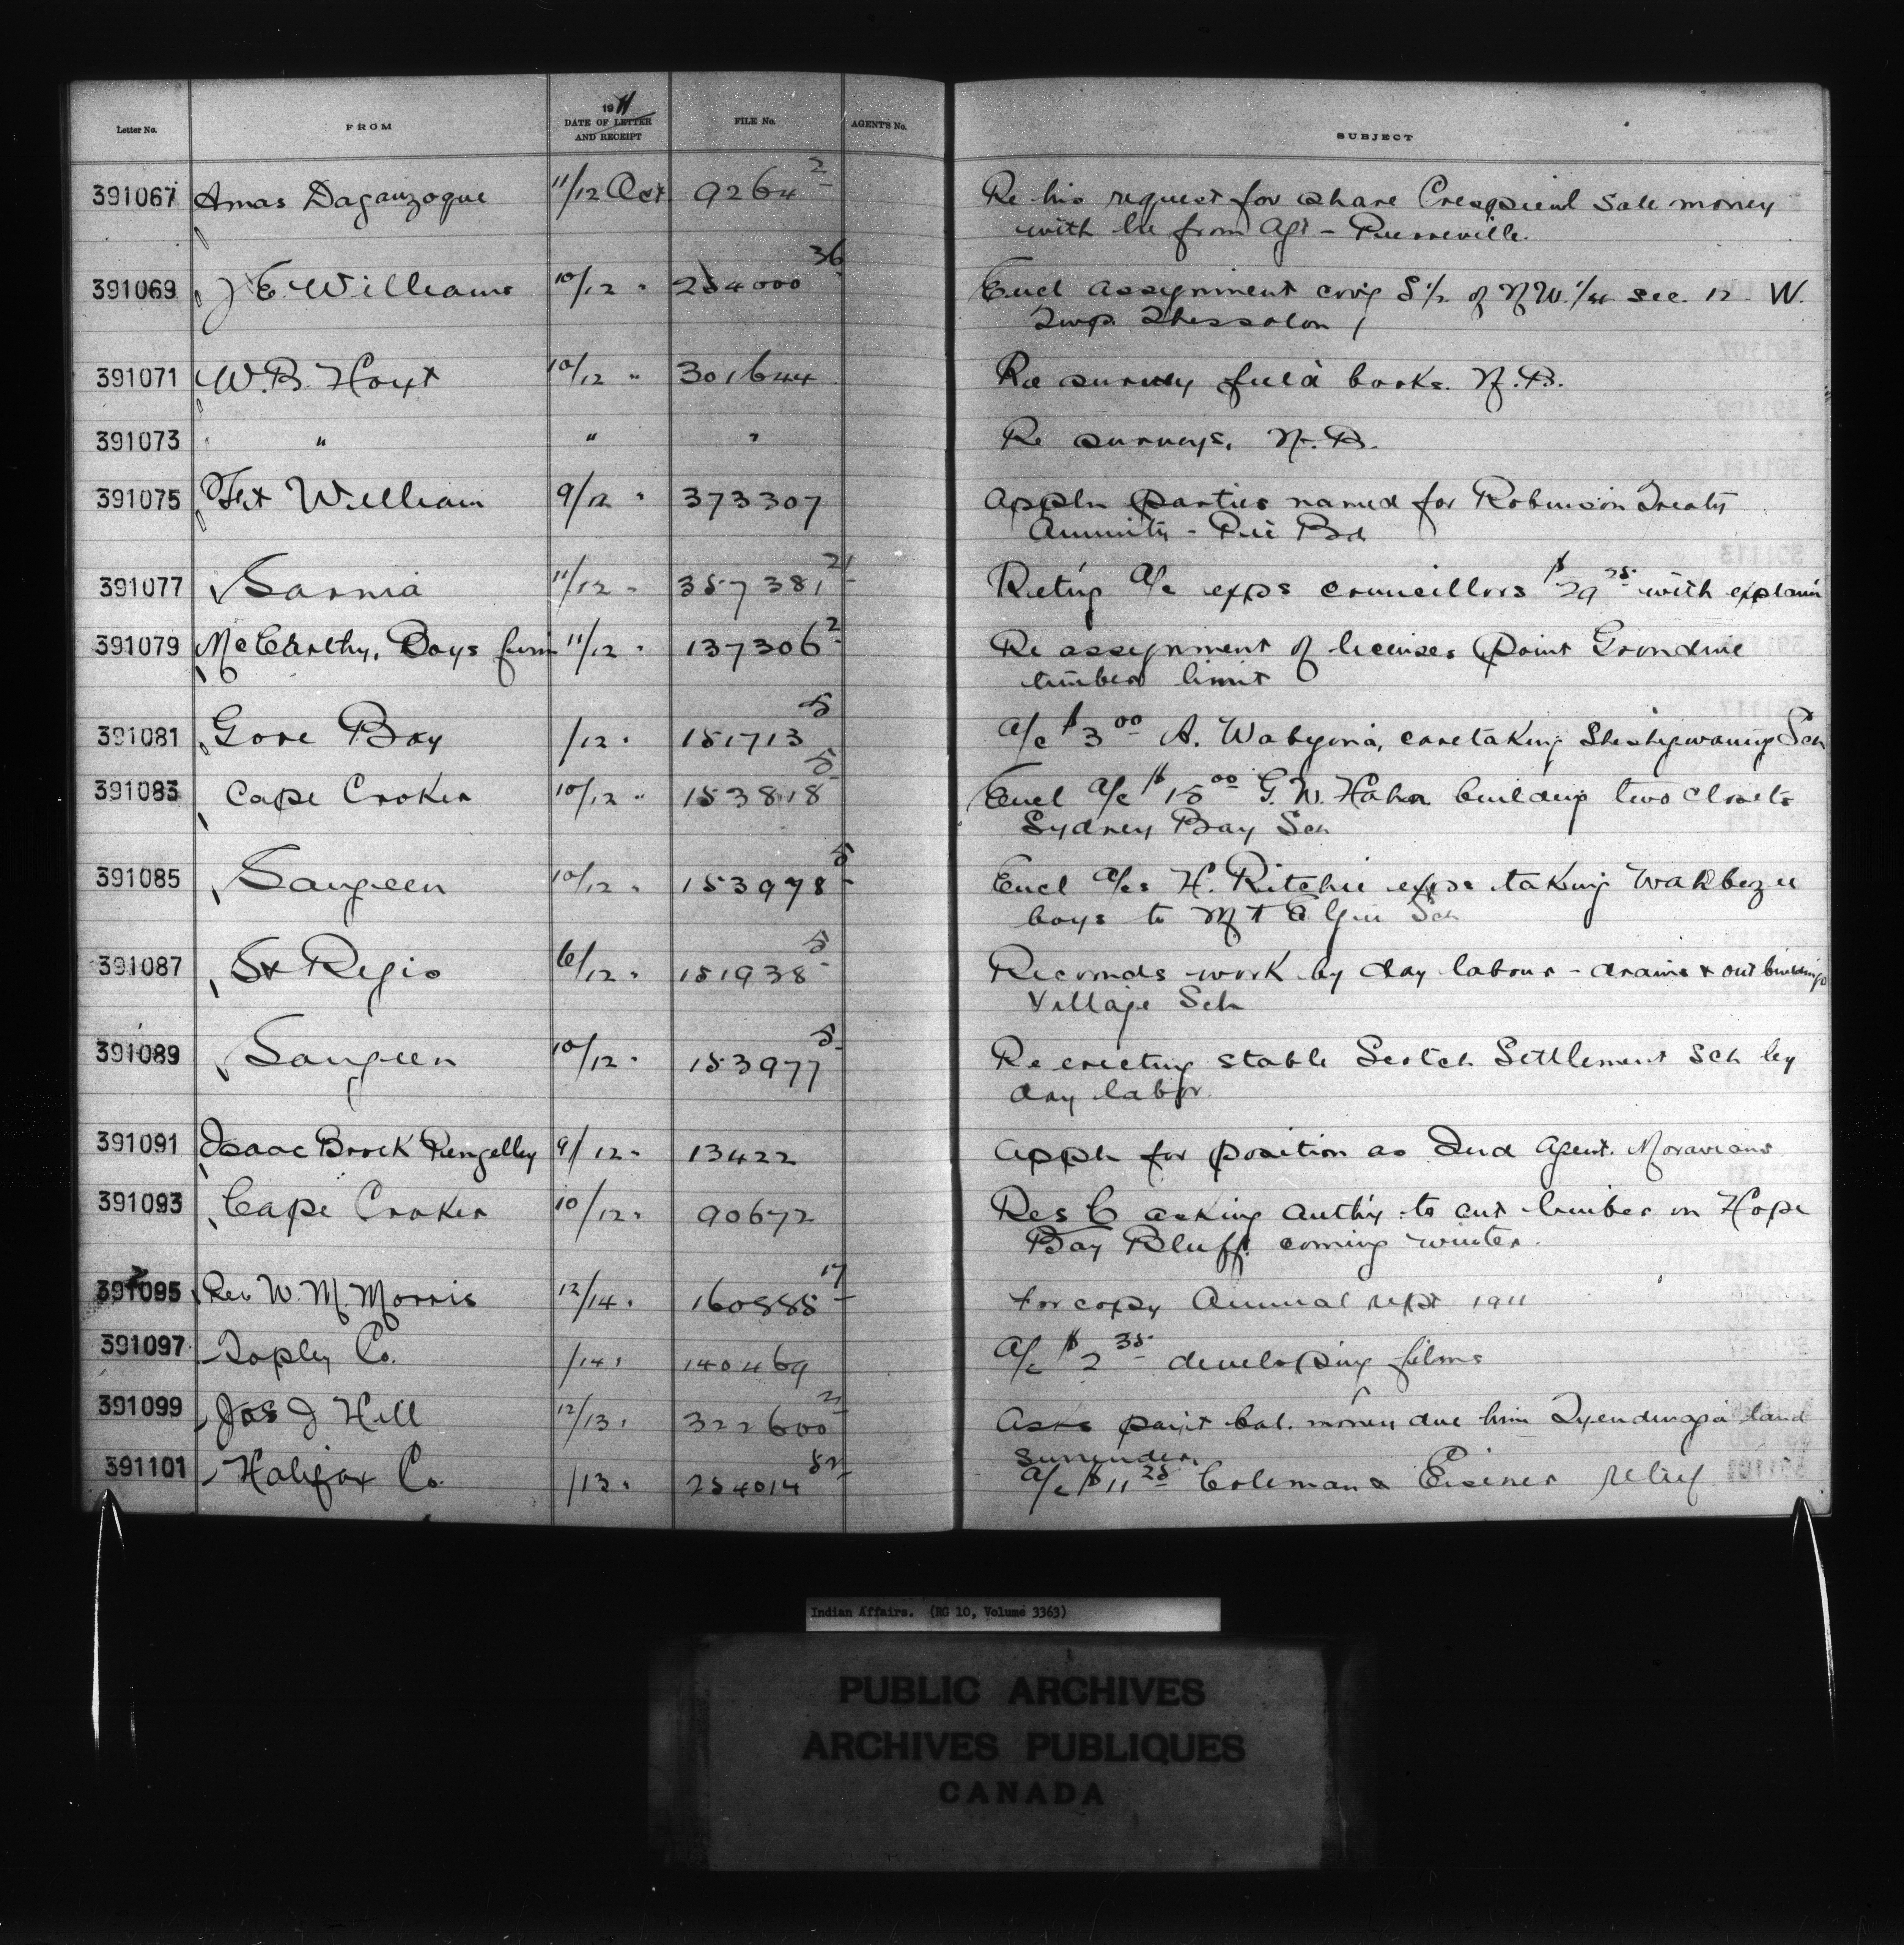 Letter No. FROM 1911 DATE OF LETTER AND RECEIPT FILE No. AGENT'S No. SUBJECT
391067 Amas Daganzoque 11/12 Oct 9264 2 Re his request for share Crespieul Sale money
with lre from Agt - Pierreville.
391069 J E. Williams 10/12 " 254000 36 Encl assignment cov'g S 1/2 of N W. 1/4 sec. 12 W.
Twp. Thessalon
391071 W. B. Hoyt 10/12 " 301644 Re survey field books. N. B.
391073 " " " Re surveys, N. B.
391075 Ft William 9/12 " 373307 Appln parties named for Robinson Treaty
Annuity - Pic Bd
391077 Sarnia 11/12 " 357381 21 Ret'g a/c exps councillors $29 25 with explan'n
391079 McCarthy, Boys firm 11/12 " 137306 2 Re assignment of licenses Point Grondine
timber limit
391081 Gore Bay /12 " 151713 5 a/c $3 00 A. Wabegina, caretaking Sheshegwaning Sch
391083 Cape Croker 10/12 " 153818 5 Encl a/c $15 00 G. W. Hahn building two closets
Sydney Bay Sch
391085 Saugeen 10/12 " 153978 5 Encl a/cs H. Ritchie exps taking Wahbezee
boys to Mt Elgin Sch
391087 St Regis 6/12 " 151938 5 Recomds work by day labour - drains & outbuildings
Village Sch
391089 Saugeen 10/12 " 153977 5 Re erecting stable Scotch Settlement Sch by
day labor.
391091 Isaac Brock 9/12 " 13422 Appln for position as Ind Agent. Moravians
391093 Cape Croker 10/12 " 90672 Res C asking auth'y to cut timber on Hope
Bay Bluff coming winter.
391095 Rev W. M Morris 12/14 " 160888 17 For copy Annual rept 1911
391097 Topley Co. /14 " 140469 a/c $2 35 developing films
391099 Jos J Hill 12/13 " 322600 2 Asks paym't bal. money due him Tyendinaga land
surrender
391101 Halifax Co. /13 " 254014 52 a/c $11 25 Coleman & Eisener relief
Indian Affairs. (RG 10, Volume 3363)
PUBLIC ARCHIVES
ARCHIVES PUBLIQUES
CANADA